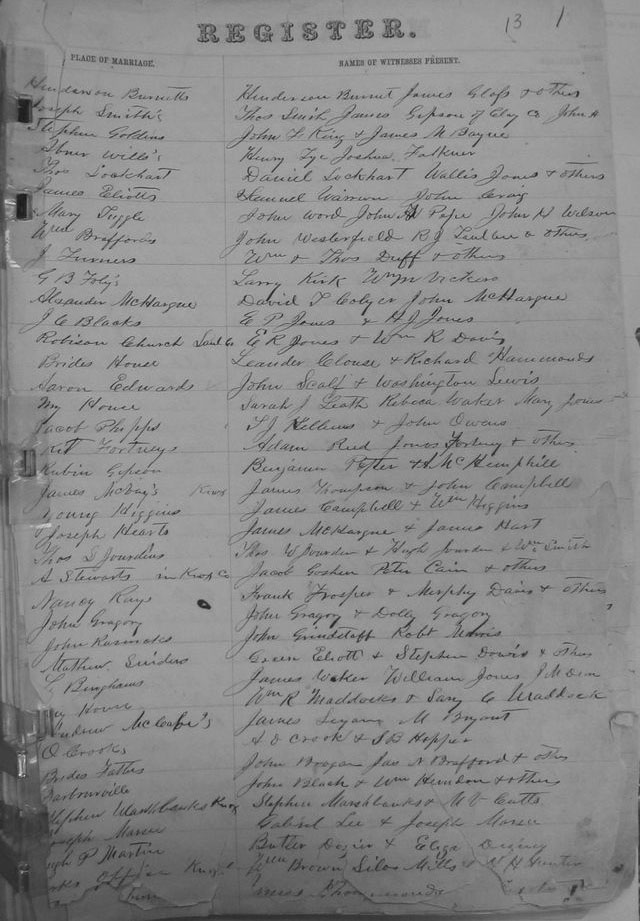 REGISTER.
13 1
PLACE OF MARRIAGE. NAMES OF WITNESSES PRESENT.
Henderson Burnetts Henderson Burnet James Glass & others
Joseph Smith's Thos Smith James Gipson of Clay Co John H
Stephen Goldins John F King & James M Bayne
Abner Wills's Henry Tye Joshua Falkner
Thos Lockhart Daniel Lockhart Wallis Jones & others
James Eliotts Samuel Warren John Craig
Mary Tuggle John Word John H Pope John H Wilson
Wm Braffords John Westerfield R J & others
J Turners Wm & Thos Duff & others
G B Foly's Larry Kirk Wm Vickers
Alexander McHargue David T Colyer John McHargue
J C Blacks E P Jones & H J Jones
Robison Church Laurel Co E R Jones & Wm R Davis
Brides House Leander Clouse & Richard Hammonds
Aaron Edwards John Scalf & Washington Lewis
My House Sarah J Leath Rebeca Waker Mary Jones
Jacob Phipps T J Kellems & John Owens
Kit Fortneys Adam Reed Jones Fortney & others
Rubin Gipson Benjamin & A McHemphill
James McVay's Knox James Thompson & John Campbell
Young Higgins James Campbell & Wm Higgins
Joseph Hearts James McHargue & James Hart
Thos S Jourdins Thos W Jourden & Hugh Jourden & Wm Smith
A Stewarts in Knox Co Jacob Goshen Peter Cain & others
Nancy Rays Frank Prosper & Murphy Davis & others
John Gragory John Gragory & Dolly Gragory
John John Grindstaff Robt
Mathew Sniders Green Eliott & Stephen Dowis & others
Binghams James Waker William Jones J M
My House Wm R Maddocks & Sary C Maddock
Andrew McCafee's James M Bryant
O Crooks A D Crook & S B Hopper
Brides Fathers John Boogan Jas N Brafford & others
Barbourville John Black & Wm Herndon & others
Stephen Mashbanks Knox Stephen Marshbanks & W V Catts
Joseph Marsee Gabriel Lee & Joseph Marsee
Hugh P Martin Butler Dozier & Eliza
Office Wm Brown Silas Mills & W H Hunter
James